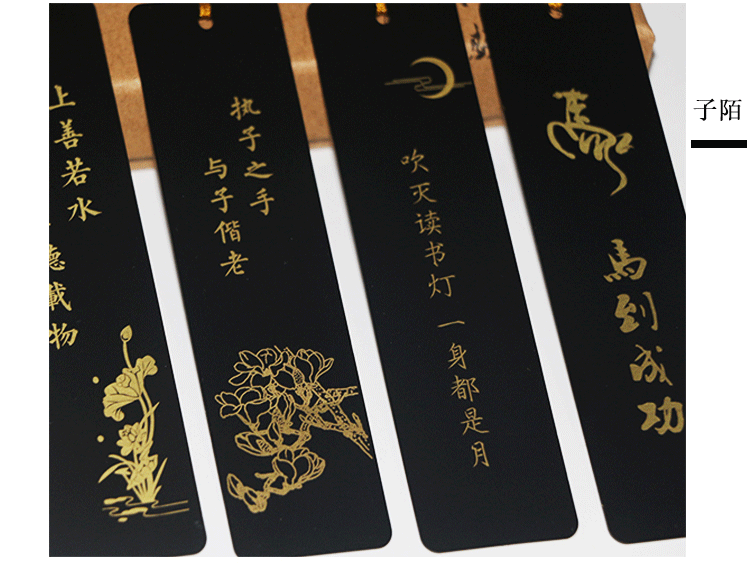 上善若水
德載物
执子之手
与子偕老
吹灭读书灯
一身都是月
馬
馬到成功
子陌